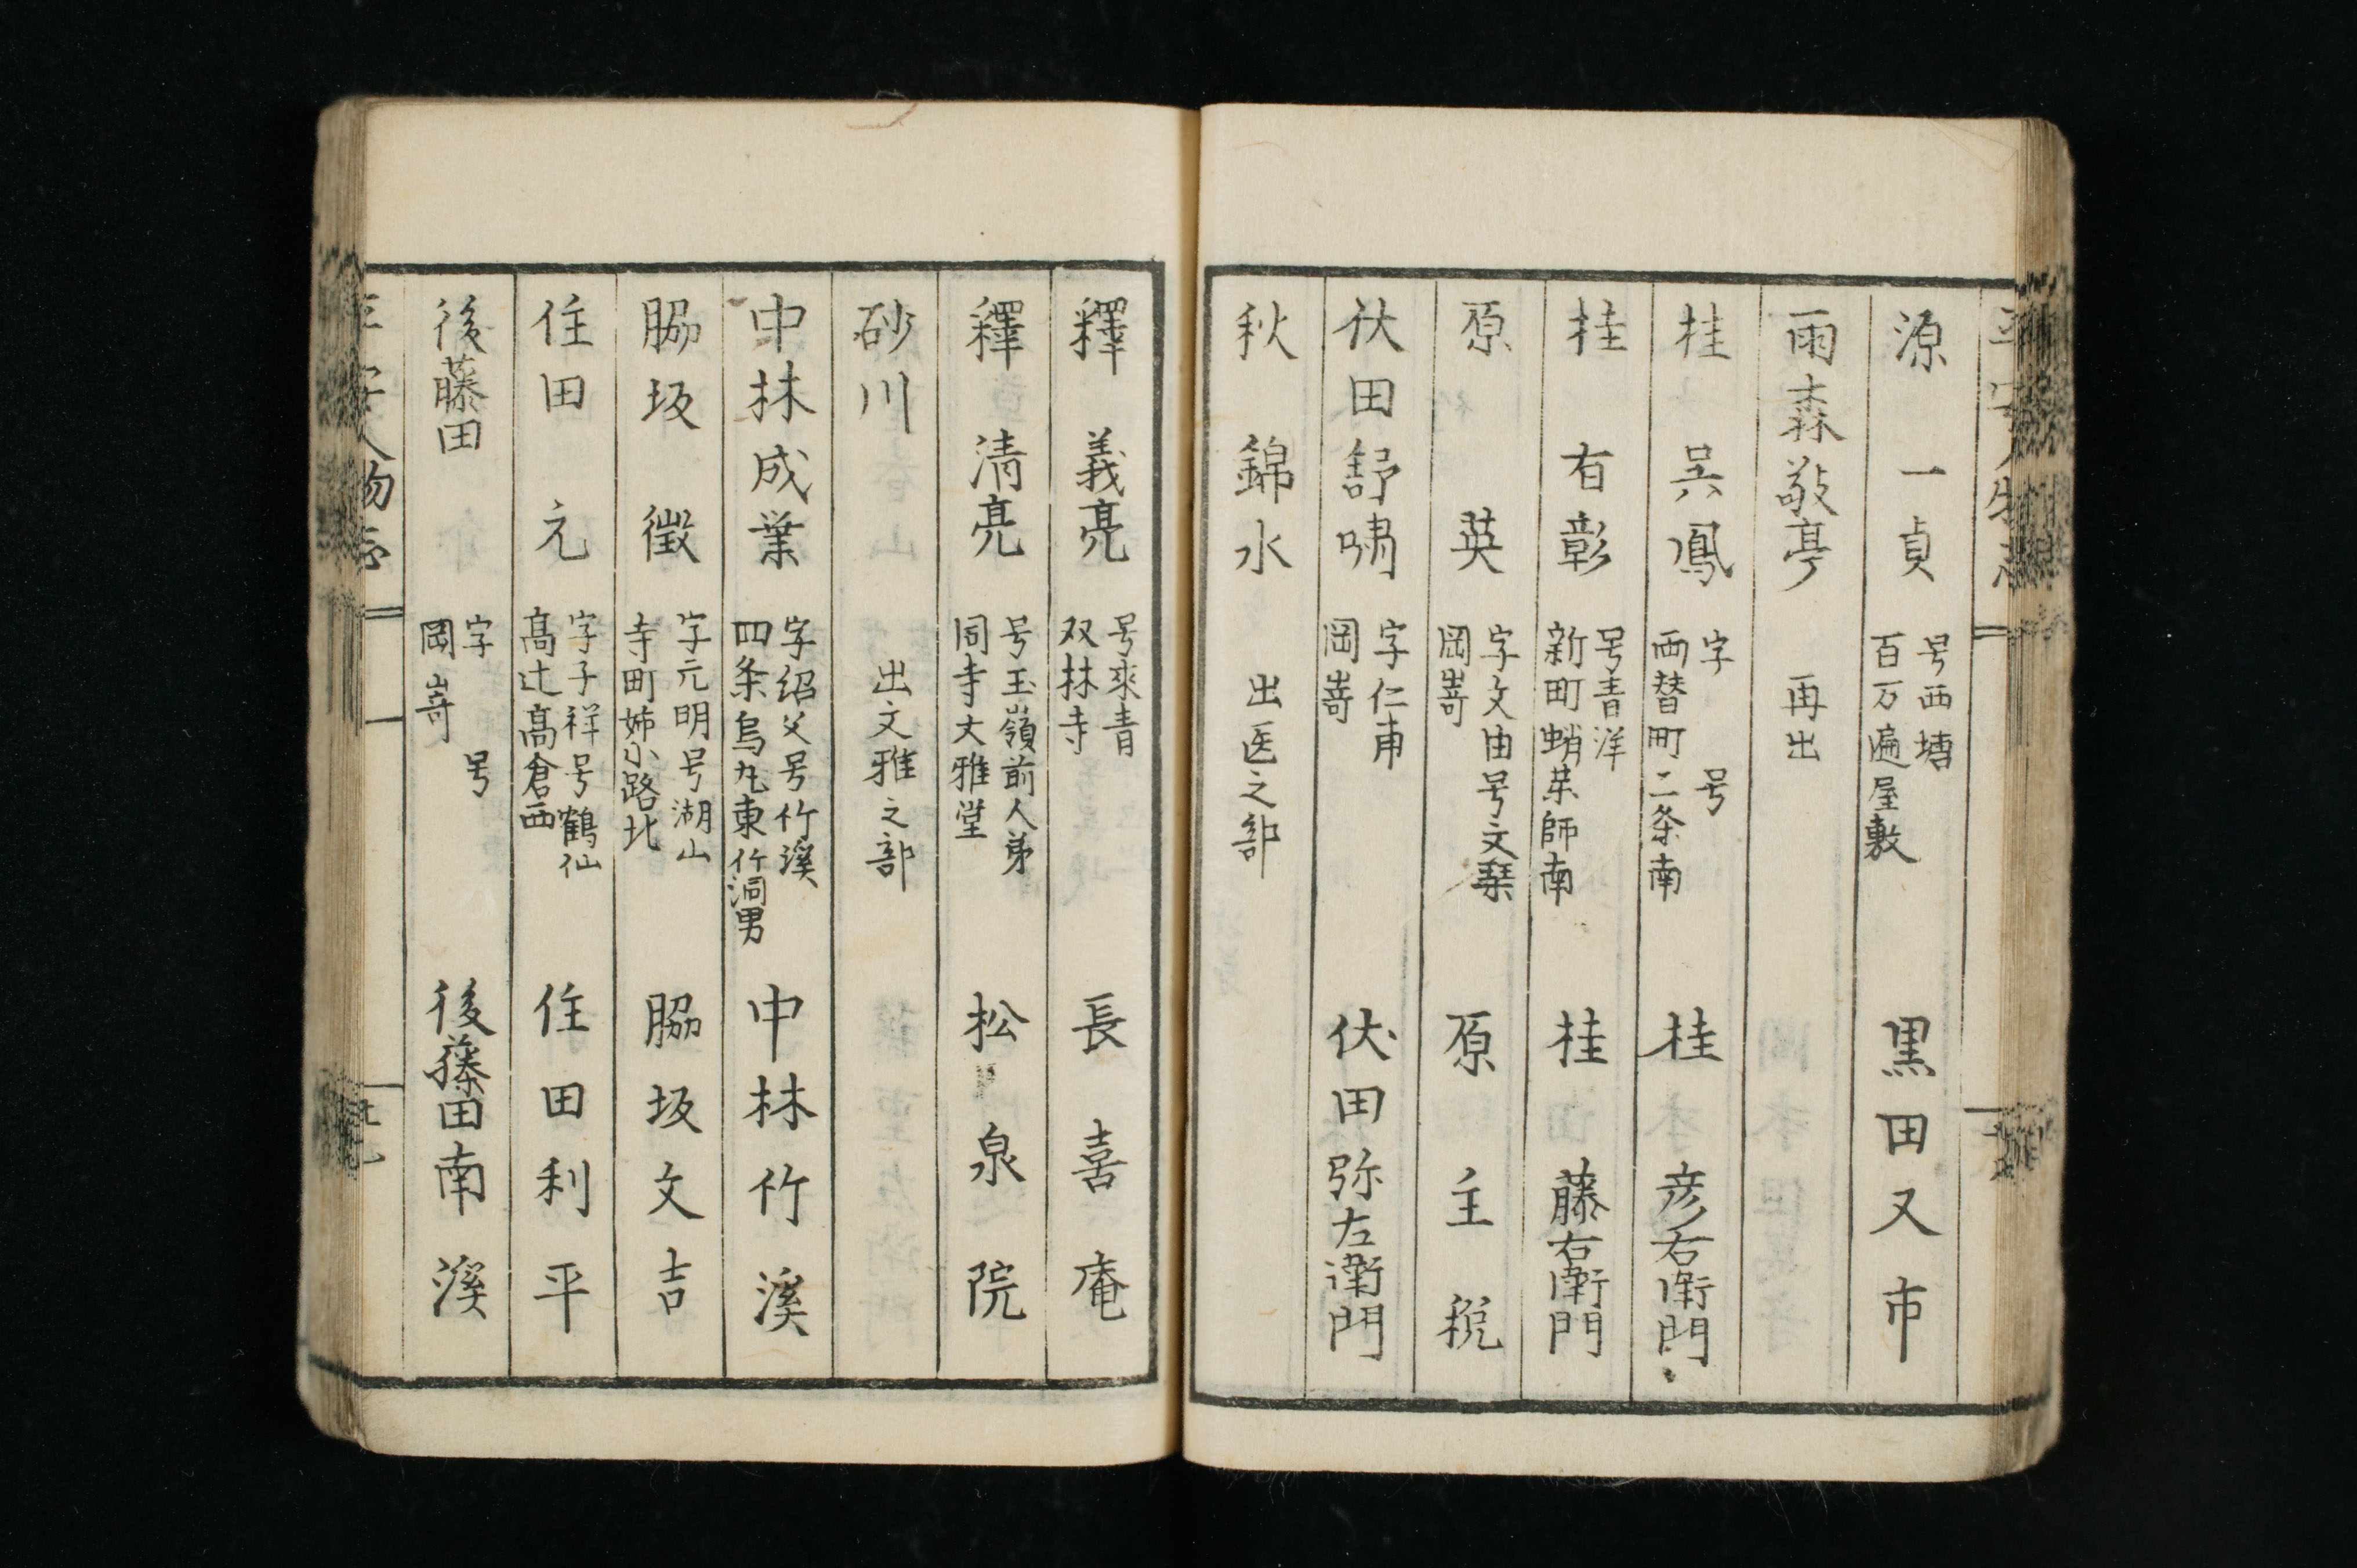 源一貞 号西塘 百万遍屋敷 黒田又市
雨森敬亭 再出
桂呉鳳 字 号 西替町二条南 桂彦右衛門
桂有彰 号青洋 新町蛸薬師南 桂藤右衛門
原英 字文由号文琹 岡嵜 原主税
伏田舒嘯 字仁甫 岡嵜 伏田弥左衛門
秋錦水 出医之部
釋義亮 号來青 双林寺 長喜庵
釋清亮 号玉嶺前人弟 同寺大雅堂 松泉院
砂川 出文雅之部
中林成業 字绍父号竹溪 四条烏丸東竹洞男 中林竹溪
脇坂徴 字元明号湖山 寺町姉小路北 脇坂文吉
住田元 字子祥号鶴仙 髙辻髙倉西 住田利平
後藤田 字 号 岡嵜 後藤田南溪
平安人物志